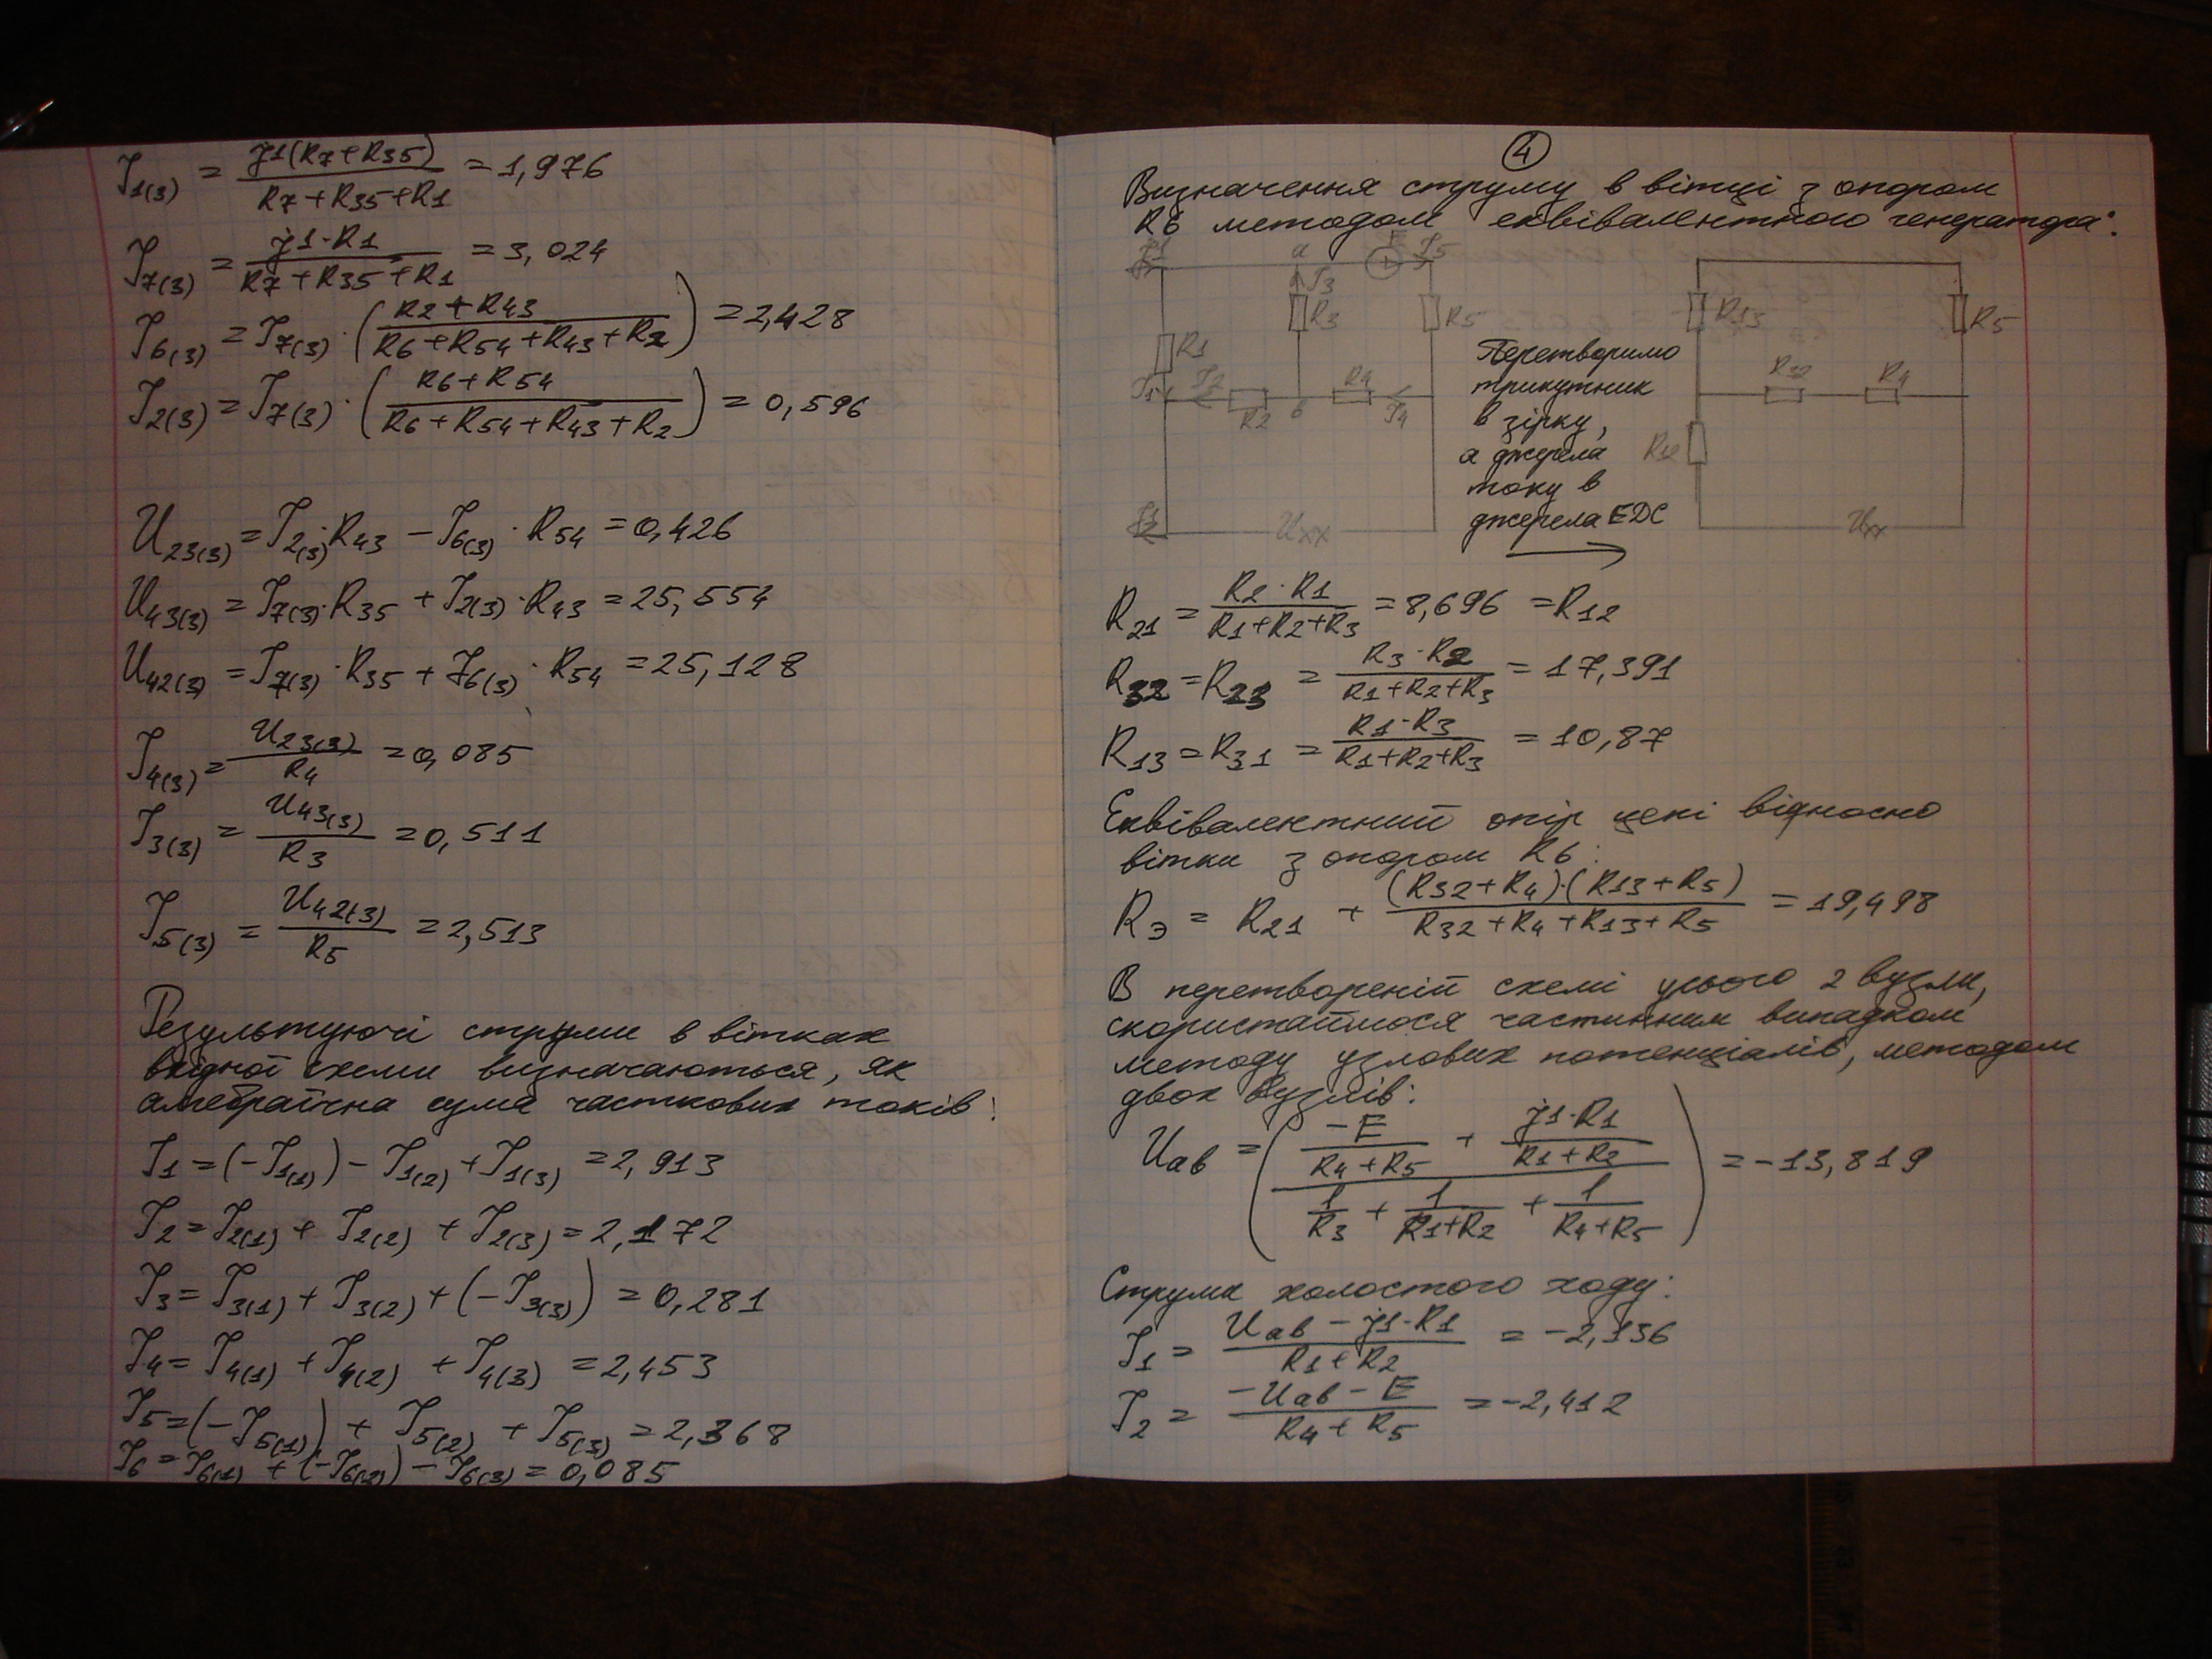 I1(3) = J1(R7+R35) / (R7+R35+R1) = 1,976
I7(3) = J1·R1 / (R7+R35+R1) = 3,024
I6(3) = I7(3)·((R2+R43) / (R6+R54+R43+R2)) = 2,428
I2(3) = I7(3)·((R6+R54) / (R6+R54+R43+R2)) = 0,596
U23(3) = I2(3)·R43 − I6(3)·R54 = 0,426
U43(3) = I7(3)·R35 + I2(3)·R43 = 25,554
U42(3) = I7(3)·R35 + I6(3)·R54 = 25,128
I4(3) = U23(3) / R4 = 0,085
I3(3) = U43(3) / R3 = 0,511
I5(3) = U42(3) / R5 = 2,513
Результуючі струми в вітках
вхідної схеми визначаються, як
алгебраїчна сума часткових токів:
I1 = (−I1(1)) − I1(2) + I1(3) = 2,913
I2 = I2(1) + I2(2) + I2(3) = 2,172
I3 = I3(1) + I3(2) + (−I3(3)) = 0,281
I4 = I4(1) + I4(2) + I4(3) = 2,453
I5 = (−I5(1)) + I5(2) + I5(3) = 2,368
I6 = I6(1) + (−I6(2)) − I6(3) = 0,085
4
Визначення струму в вітці з опором
R6 методом еквівалентного генератора:
J1 a E I5
I3
R3 R5
R1
I2 R4
R2 b I4
Uxx
Перетворимо
трикутник
в зірку,
а джерела
току в
джерела ЕДС
R13 R5
R32 R4
R12
Uxx
R21 = R2·R1 / (R1+R2+R3) = 8,696 = R12
R32 = R23 = R3·R2 / (R1+R2+R3) = 17,391
R13 = R31 = R1·R3 / (R1+R2+R3) = 10,87
Еквівалентний опір цепі відносно
вітки з опором R6:
Rэ = R21 + (R32+R4)·(R13+R5) / (R32+R4+R13+R5) = 19,498
В перетвореній схемі усього 2 вузли,
скористаймося частинним випадком
методу узлових потенціалів, методом
двох вузлів:
Uab = ((−E / (R4+R5) + J1·R1 / (R1+R2)) / (1/R3 + 1/(R1+R2) + 1/(R4+R5))) = −13,819
Струми холостого ходу:
I1 = (Uab − J1·R1) / (R1+R2) = −2,136
I2 = (−Uab − E) / (R4+R5) = −2,412